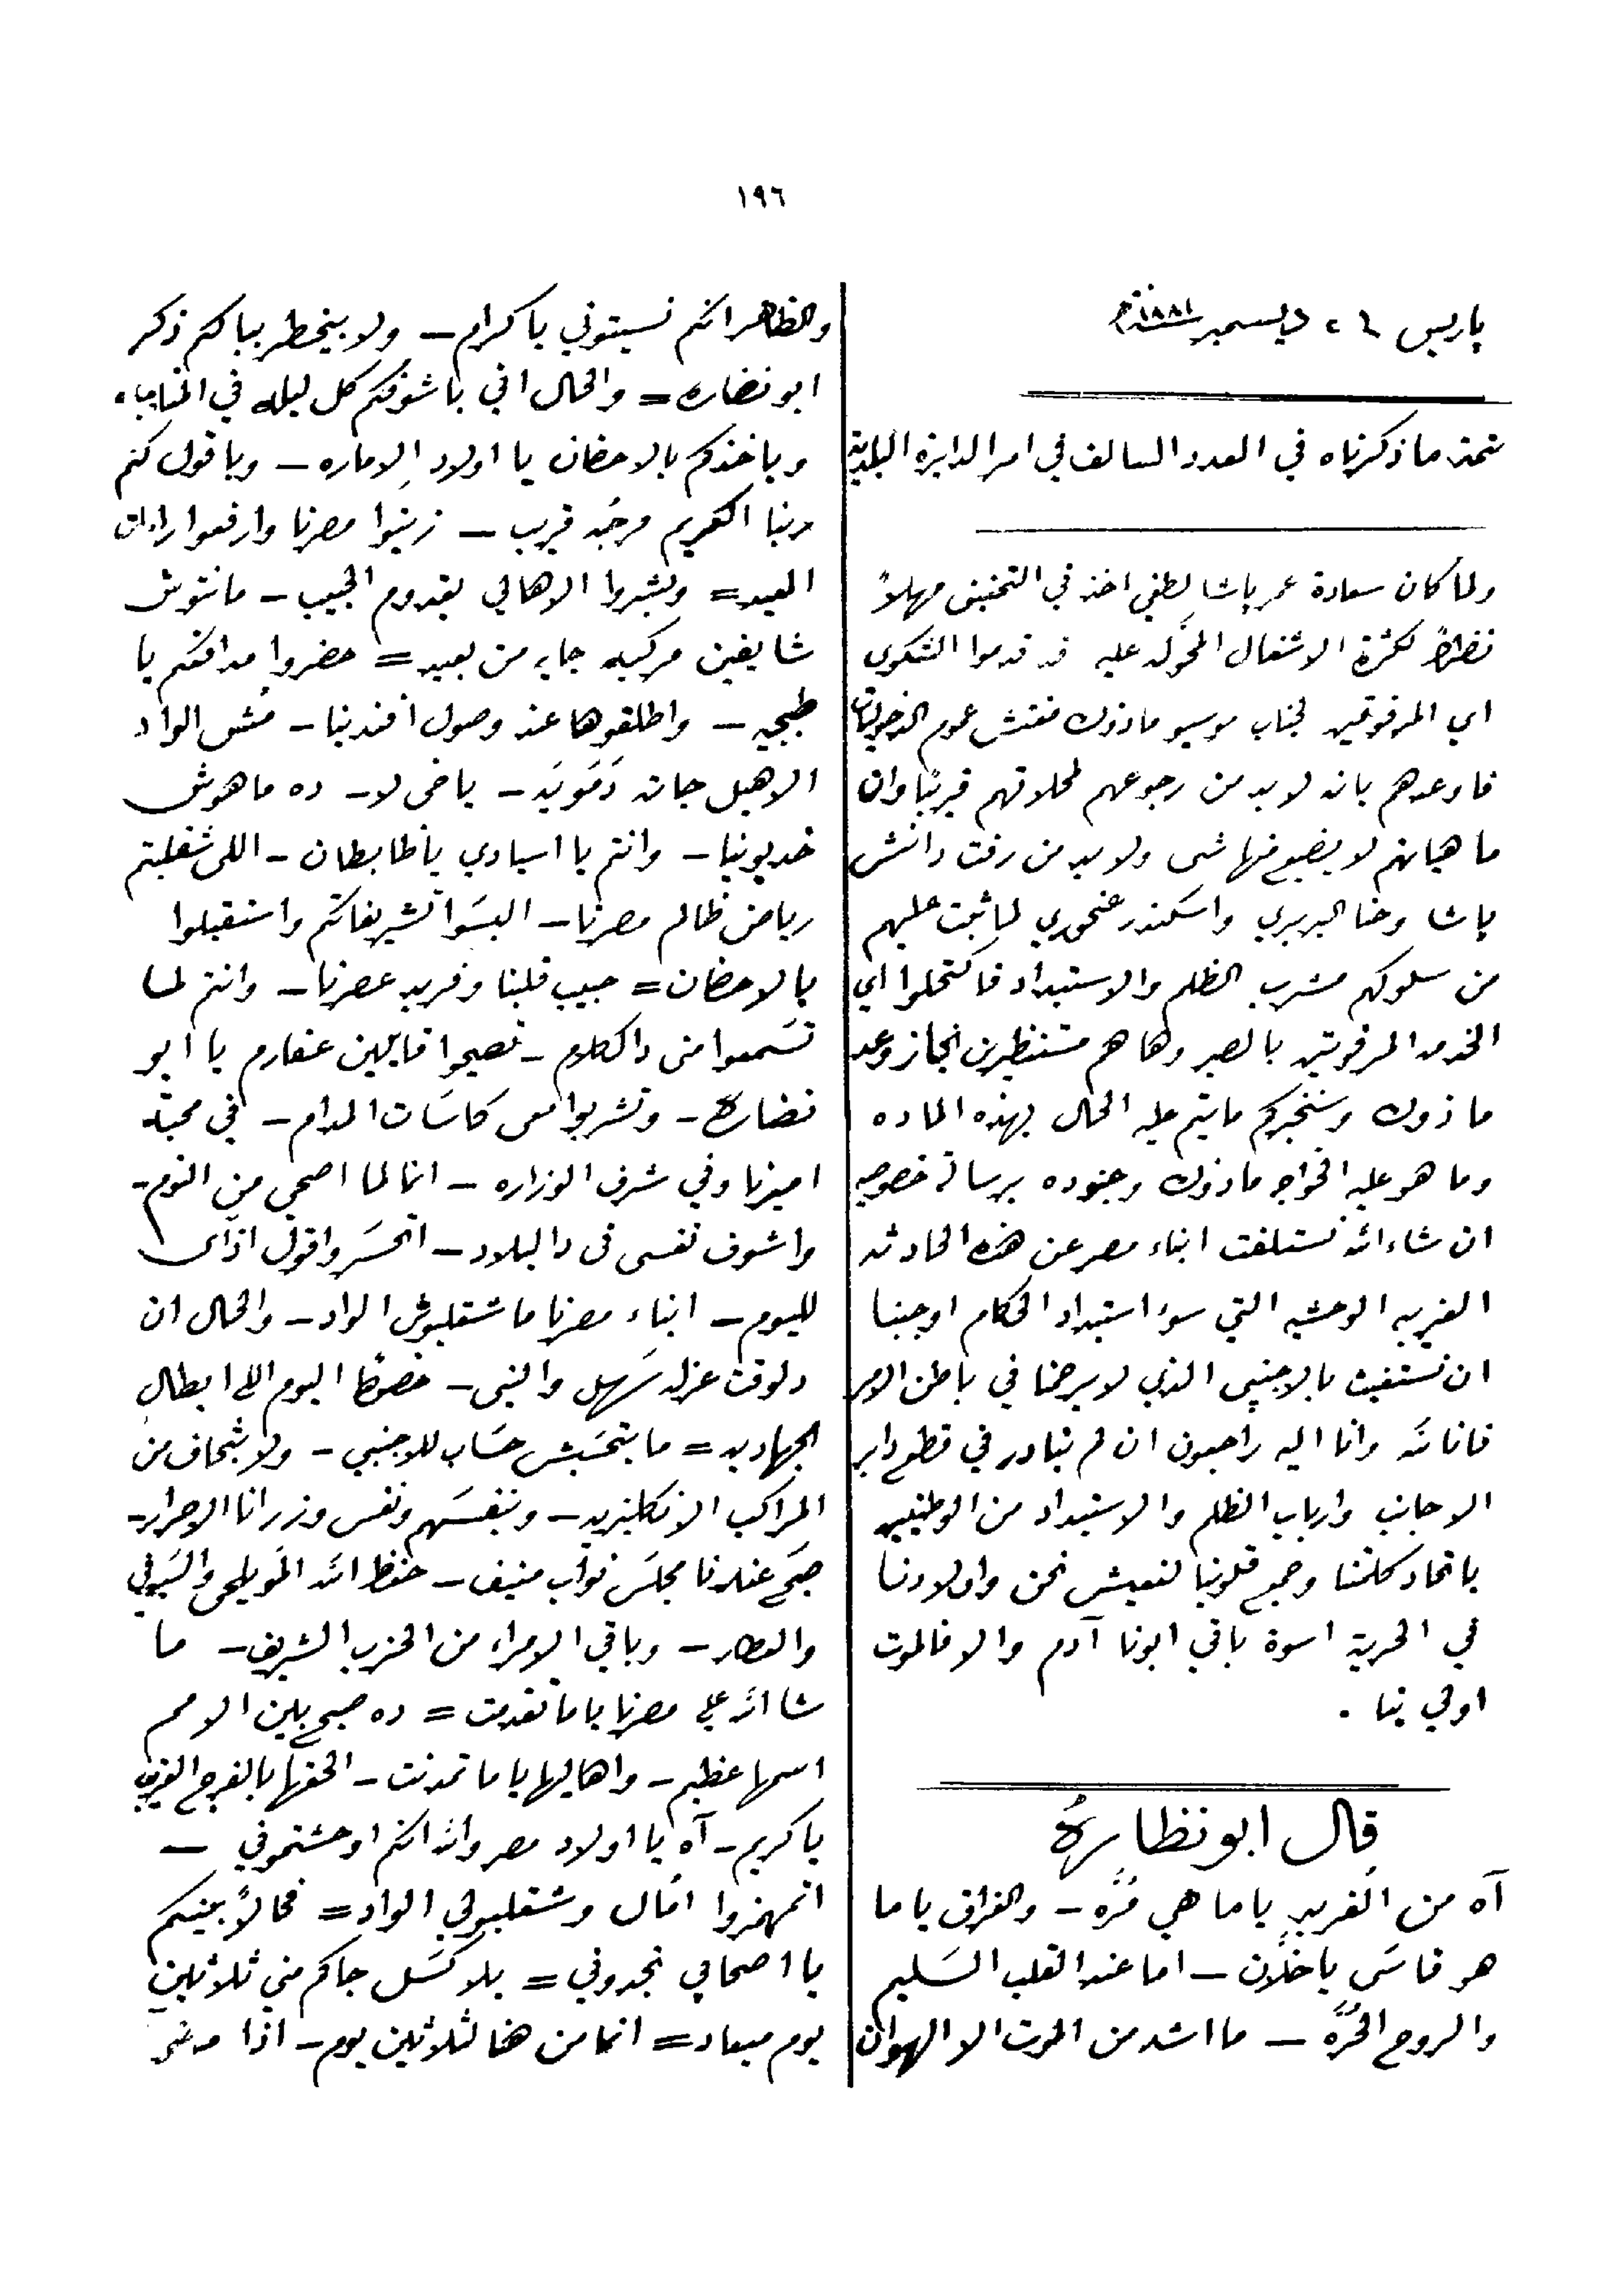 ١٩٦
پاريس ٢٦ ديسمبر سنة ١٨٨١
تتمة ما ذكرناه في العدد السالف في امر الدايرة البلدية
ولما كان سعادة عمر پاشا لطفي اخذ في التحقيق مهلاً
نظراً لكثرة الاشغال المحوله عليه قد قدموا الشكوى
اي المرفوتين لجناب موسيو مازوك مفتش عموم الدخوليات
فاوعدهم بانه لابد من رجوعهم لمحلاتهم قريبًا وان
ماهياتهم لا يضيع منها شى ولابد من رفت دانش
پاشا وحنا البربري واسكندر عنحوري لما ثبت عليهم
من سلوكهم مشرب الظلم والاستبداد فاكتحلوا اي
الخدمه المرفوتين بالصبر وها هم منتظرين انجاز وعد
مازوك وسنخبركم مايتم عليه الحال بهذه الماده
وما هو عليه الخواجه مازوك وجنوده برسالة خصوصيه
ان شاء الله نستلفت ابناء مصر عن هذه الحادثه
الغريبه الوحشيه التي سوء استبداد الحكام اوجبنا
ان نستغيث بالاجنبي الذي لا يرحمنا في باطن الامر
فانا لله وانا اليه راجعون ان لم نبادر في قطع دابر
الاجانب وارباب الظلم والاستبداد من الوطنيين
باتحاد كلمتنا وجمع قلوبنا لنعيش نحن واولادنا
في الحرية اسوة باقي ابونا آدم والا فالموت
اولي بنا .
قال ابو نظارة
آه من الغربه ياما هي مُرَّه – والفراق ياما
هو قاسَى ياخلان – اما عند القلب السَليم
والروح الحُرَّه – ما اشد من الموت الا الهوان
والظاهر انكم نسيتوني يا كرام – ولا بيخطر ببالكم ذكر
ابو نضاره = والحال اني باشوفكم كل ليله في المنام
وباخذكم بالاحضان يا اولاد الاماره – وباقول لكم
ربنا الكريم فرجُه قريب – زينوا مصرنا وارفعوا رايات
العيد = وبشروا الاهالي بقدوم الحبيب – مانتوش
شايفين مركبه جايه من بعيد = حضروا مدافعكم يا
طبجيه – واطلقوها عند وصول افندينا – مُش الواد
الاهبل جات دَمَويَه – ياخى لا – ده ماهوش
خديوينا – وانتم يا اسيادي ياظابطان – اللى شقلبتم
رياض ظالم مصرنا – البسَوا تشريفاتكم واستقبلوا
بالاحضان = حبيب قلبنا وفريد عصرنا – وانتم لما
تسَمعوا منى دالكلام – تصيحوا قايلين عفارم يا ابو
نضاره – وتشربوا معى كاسَات المدام – في محبة
اميرنا وفي شرف الوزاره – انا لما اصحى من النوم –
واشوف نفسى فى دا البلاد – اتحسَر واقول ازاى
لليوم – ابناء مصرنا ما شقلبوش الواد – والحال ان
دلوقت عزله سَهل والنبى – خصوصًا اليوم اللى ابطال
الجهاديه = ما بتحسَبش حسَاب للاجنبي – ولا بتخاف من
المراكب الانكليزيه – وبنفسَهم ونفس وزرانا الاحرار –
صبَح عندنا مجلسَ نواب منيف – حفظ الله المويلحى والسيوفي
والعطار – وباقي الامراء من الحزب الشريف – ما
شا الله على مصرنا ياما تقدمت = ده صبح بين الامم
اسمها عظيم – واهاليها ياما تمدنت – الحقها بالفرج القريب
يا كريم – آه يا اولاد مصر والله انكم اوحشتموني –
اتمهزوا امال وشقلبولي الواد = فحالاً بينكم
يا اصحابي تجدوني = بلا كسَل جاكم مني ثلاثين
يوم ميعاد = انما من هنا لثلاثين يوم – اذا